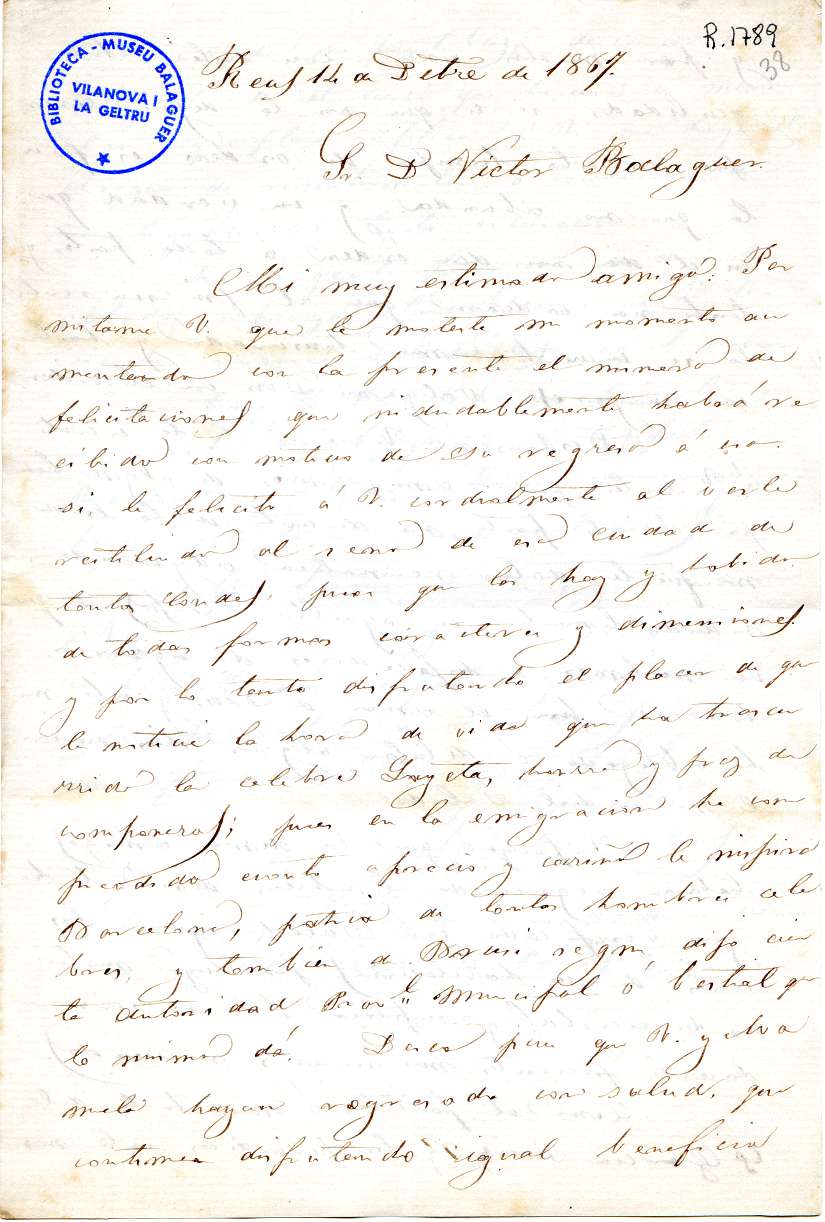 R.1789
38
BIBLIOTECA - MUSEU BALAGUER
VILANOVA I
LA GELTRU
Reus 14 de Dbre de 1867.
Sr. D Victor Balaguer.
Mi muy estimado amigo: Per
mitame V. que le moleste un momento au
mentando con la presente el numero de
felicitaciones que indudablemente habrá re
cibido con motivo de su regreso á esa.
si le felicito á V. cordialmente al verle
restituido al seno de esa Ciudad de
tantos Condes, pues que los hay y habido
de todas formas caracteres y dimensiones
y por lo tanto disfrutando el placer de que
le noticie la hora de vida que ha trascu
rrido la celebre honra y prez de
pues en la emigracion he com
prendido cuanto aprecio y cariño le inspira
Barcelona, patria de tantos hombres cele
bres, y tambien de Brusi segun dijo cier
ta autoridad Provl. Municipal ó bestial que
lo mismo dá. Deseo pues que V. y Ma
mela hayan regresado con salud, que
continuen disfrutando igual beneficio